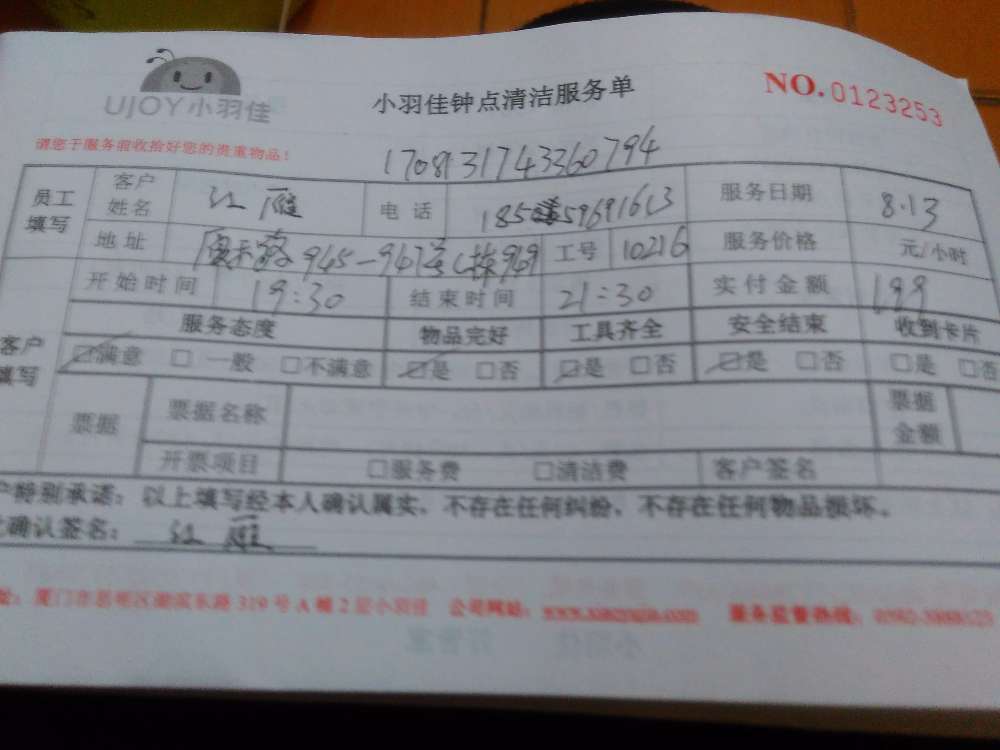 UJOY小羽佳
小羽佳钟点清洁服务单
NO.0123253
请您于服务前收拾好您的贵重物品！
1708131743360794
员工填写 客户姓名 江雁 电话 服务日期 8.13
地址 945-967号C栋969 工号 10216 服务价格 元/小时
客户填写 开始时间 19:30 结束时间 21:30 实付金额 199
服务态度 物品完好 工具齐全 安全结束 收到卡片
☑满意 □一般 □不满意 ☑是 □否 ☑是 □否 ☑是 □否 □是 □否
票据 票据名称 票据金额
开票项目 □服务费 □清洁费 客户签名
户特别承诺：以上填写经本人确认属实，不存在任何纠纷，不存在任何物品损坏。
确认签名：江雁
厦门市思明区湖滨东路319号A幢2层小羽佳 公司网站： 服务监督热线：